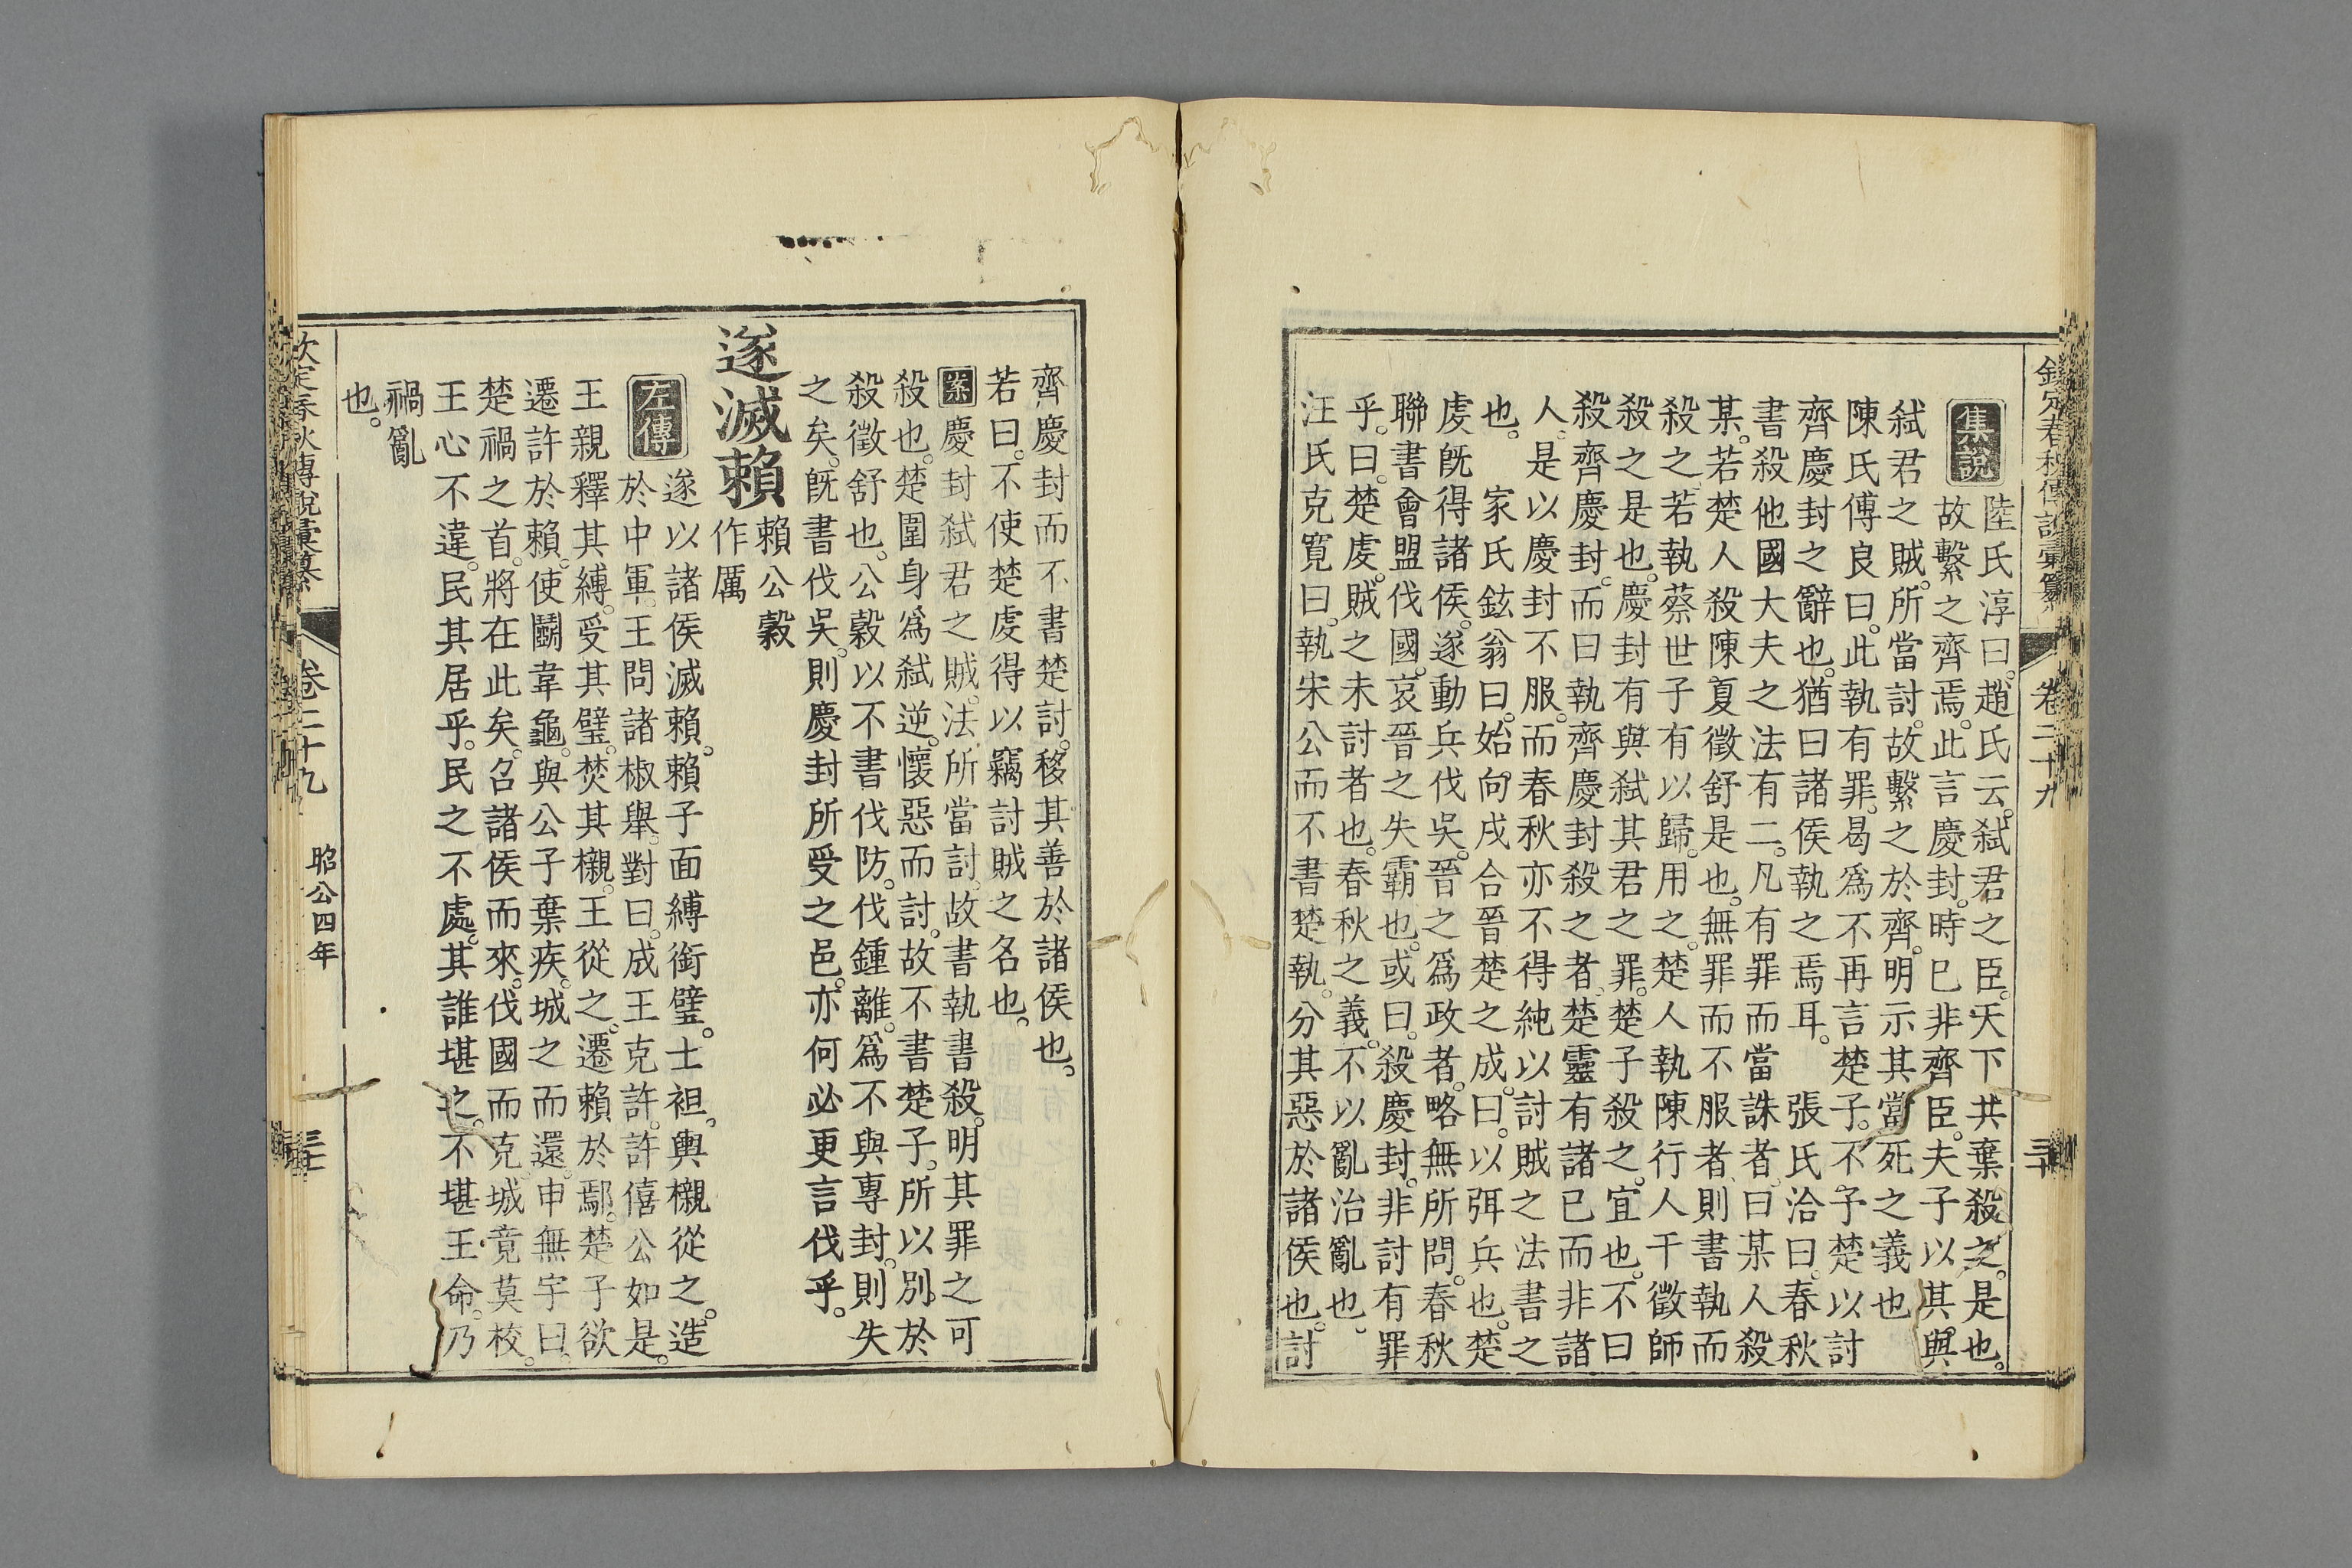 欽定春秋傳說彙纂 卷二十九 三十
集說 陸氏淳曰趙氏云弑君之臣天下共棄殺之是也
故繫之齊焉此言慶封時已非齊臣夫子以其與
弑君之賊所當討故繫之於齊明示其當死之義也
陳氏傅良曰此執有罪曷爲不再言楚子不予楚以討
齊慶封之辭也猶曰諸侯執之焉耳 張氏洽曰春秋
書殺他國大夫之法有二凡有罪而當誅者曰某人殺
某若楚人殺陳夏徵舒是也無罪而不服者則書執而
殺之若執蔡世子有以歸用之楚人執陳行人干徵師
殺之是也慶封有與弑其君之罪楚子殺之宜也不曰
殺齊慶封而曰執齊慶封殺之者楚靈有諸已而非諸
人是以慶封不服而春秋亦不得純以討賊之法書之
也 家氏鉉翁曰始向戌合晉楚之成曰以弭兵也楚
虔旣得諸侯遂動兵伐吳晉之爲政者略無所問春秋
聯書會盟伐國哀晉之失霸也或曰殺慶封非討有罪
乎曰楚虔賊之未討者也春秋之義不以亂治亂也
汪氏克寬曰執宋公而不書楚執分其惡於諸侯也討
齊慶封而不書楚討移其善於諸侯也
若曰不使楚虔得以竊討賊之名也
案慶封弑君之賊法所當討故書執書殺明其罪之可
殺也楚圍身爲弑逆懷惡而討故不書楚子所以別於
殺徵舒也公穀以不書伐防伐鍾離爲不與專封則失
之矣旣書伐吳則慶封所受之邑亦何必更言伐乎
遂滅賴 賴公穀
作厲
左傳 遂以諸侯滅賴賴子面縛銜璧士袒輿櫬從之造
於中軍王問諸椒舉對曰成王克許許僖公如是
王親釋其縛受其璧焚其櫬王從之遷賴於鄢楚子欲
遷許於賴使鬬韋龜與公子棄疾城之而還申無宇曰
楚禍之首將在此矣召諸侯而來伐國而克城竟莫校
王心不違民其居乎民之不處其誰堪之不堪王命乃
禍亂
也
欽定春秋傳說彙纂 卷二十九 昭公四年 三十一